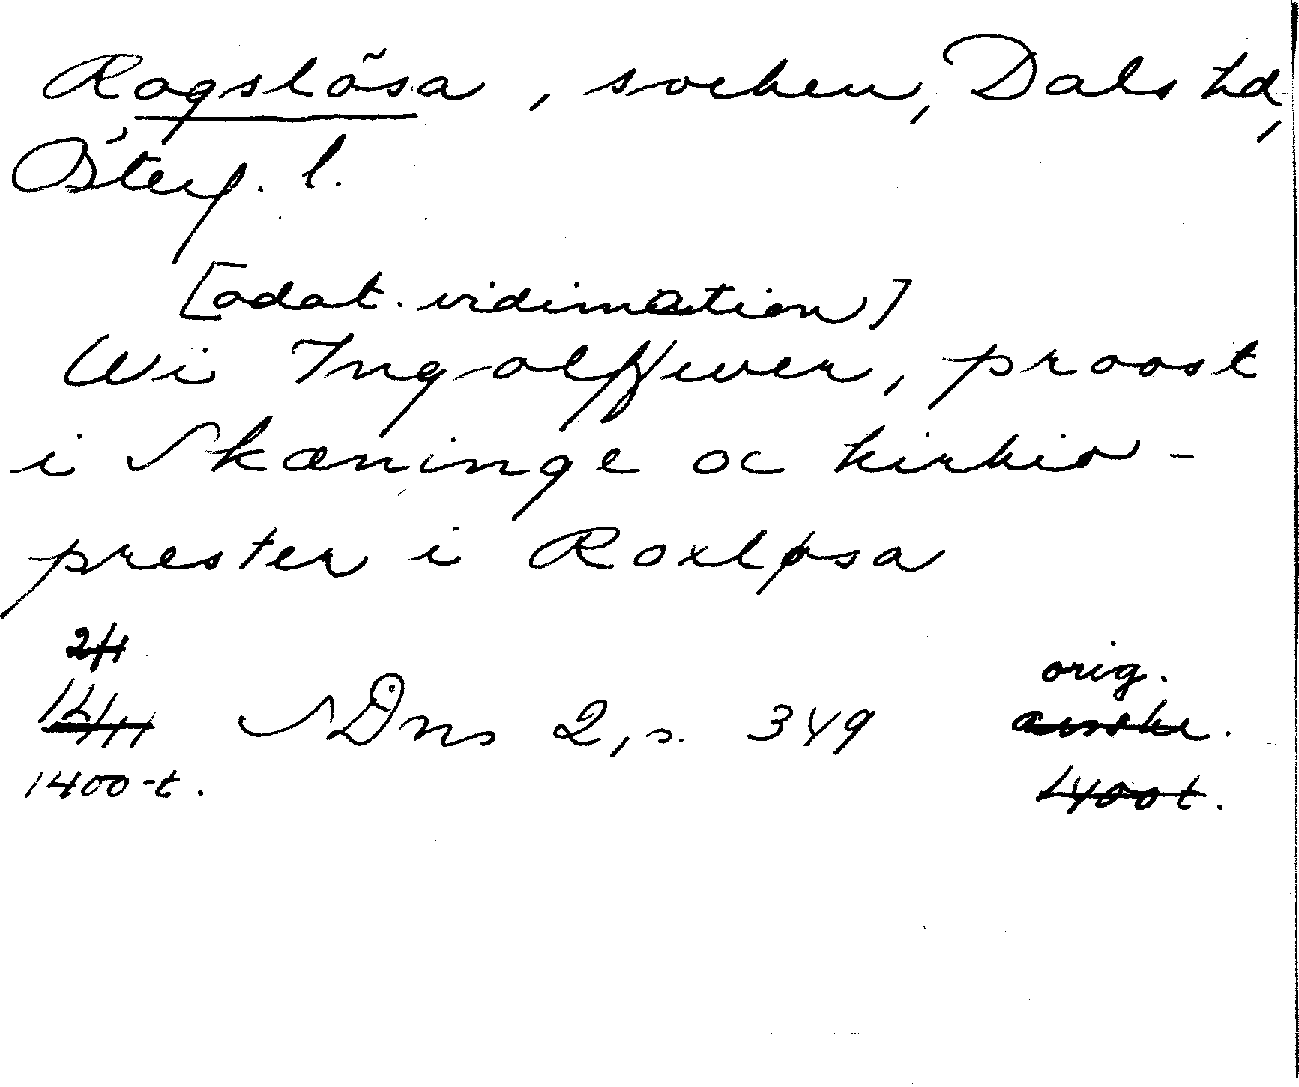 Rogslösa, socken, Dals hd,
Österg. l.
[odat. vidimation]
Wi Ingolffwer, proost
i Skæninge oc kirkio-
prester i Roxløsa
2/1
12/11 SDns 2, s. 349 orig.
1400-t. 1400t.